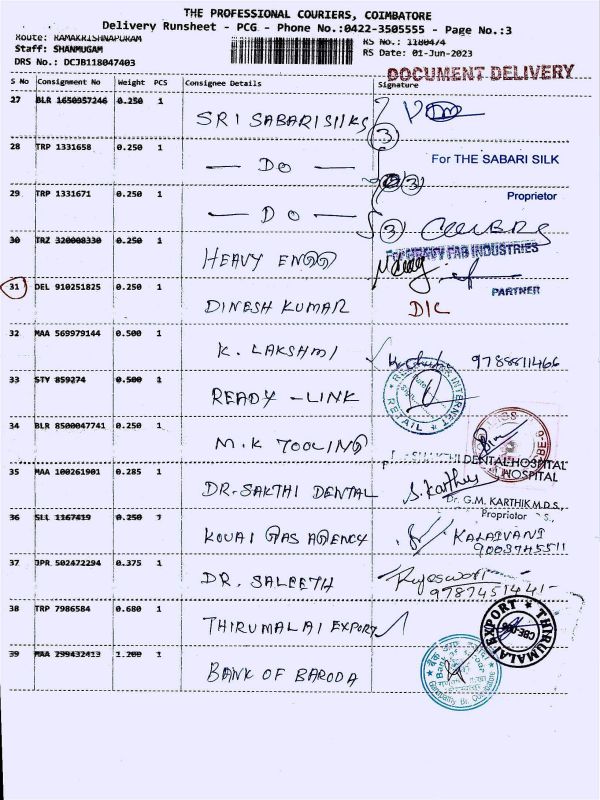 THE PROFESSIONAL COURIERS, COIMBATORE
Delivery Runsheet - PCG - Phone No.:0422-3505555 - Page No.:3
Route: RAMAKRISHNAPURAM
RS No.: 1180474
Staff: SHANMUGAM
RS Date: 01-Jun-2023
DRS No.: DCJB118047403
DOCUMENT DELIVERY
S No Consignment No Weight PCS Consignee Details Signature
27 BLR 1650957246 0.250 1 SRI SABARI SILKS
3
28 TRP 1331658 0.250 1 — DO —
3
For THE SABARI SILK
Proprietor
29 TRP 1331671 0.250 1 — DO —
3
30 TRZ 320008330 0.250 1 HEAVY ENGG
For HEAVY FAB INDUSTRIES
PARTNER
31 DEL 910251825 0.250 1 DINESH KUMAR D/C
32 MAA 569979144 0.500 1 K. LAKSHMI 9788811466
33 STY 859274 0.500 1 READY - LINK
INTERNET
RETAIL
34 BLR 8500047741 0.250 1 M.K TOOLING
DENTAL HOSPITAL
HOSPITAL
35 MAA 100261901 0.285 1 DR. SAKTHI DENTAL S. Karthy
Dr. G.M. KARTHIK M.D.S.,
Proprietor
36 SLL 1167419 0.250 1 KOVAI GAS AGENCY KALAIVANI
9003745511
37 JPR 502472294 0.375 1 DR. SALEETH Rajeswari
9787451441-
38 TRP 7986584 0.680 1 THIRUMALAI EXPORT
THIRUMALAI EXPORT
39 MAA 299432413 1.200 1 BANK OF BARODA
Bank of Baroda
Ganapathy Br. Coimbatore